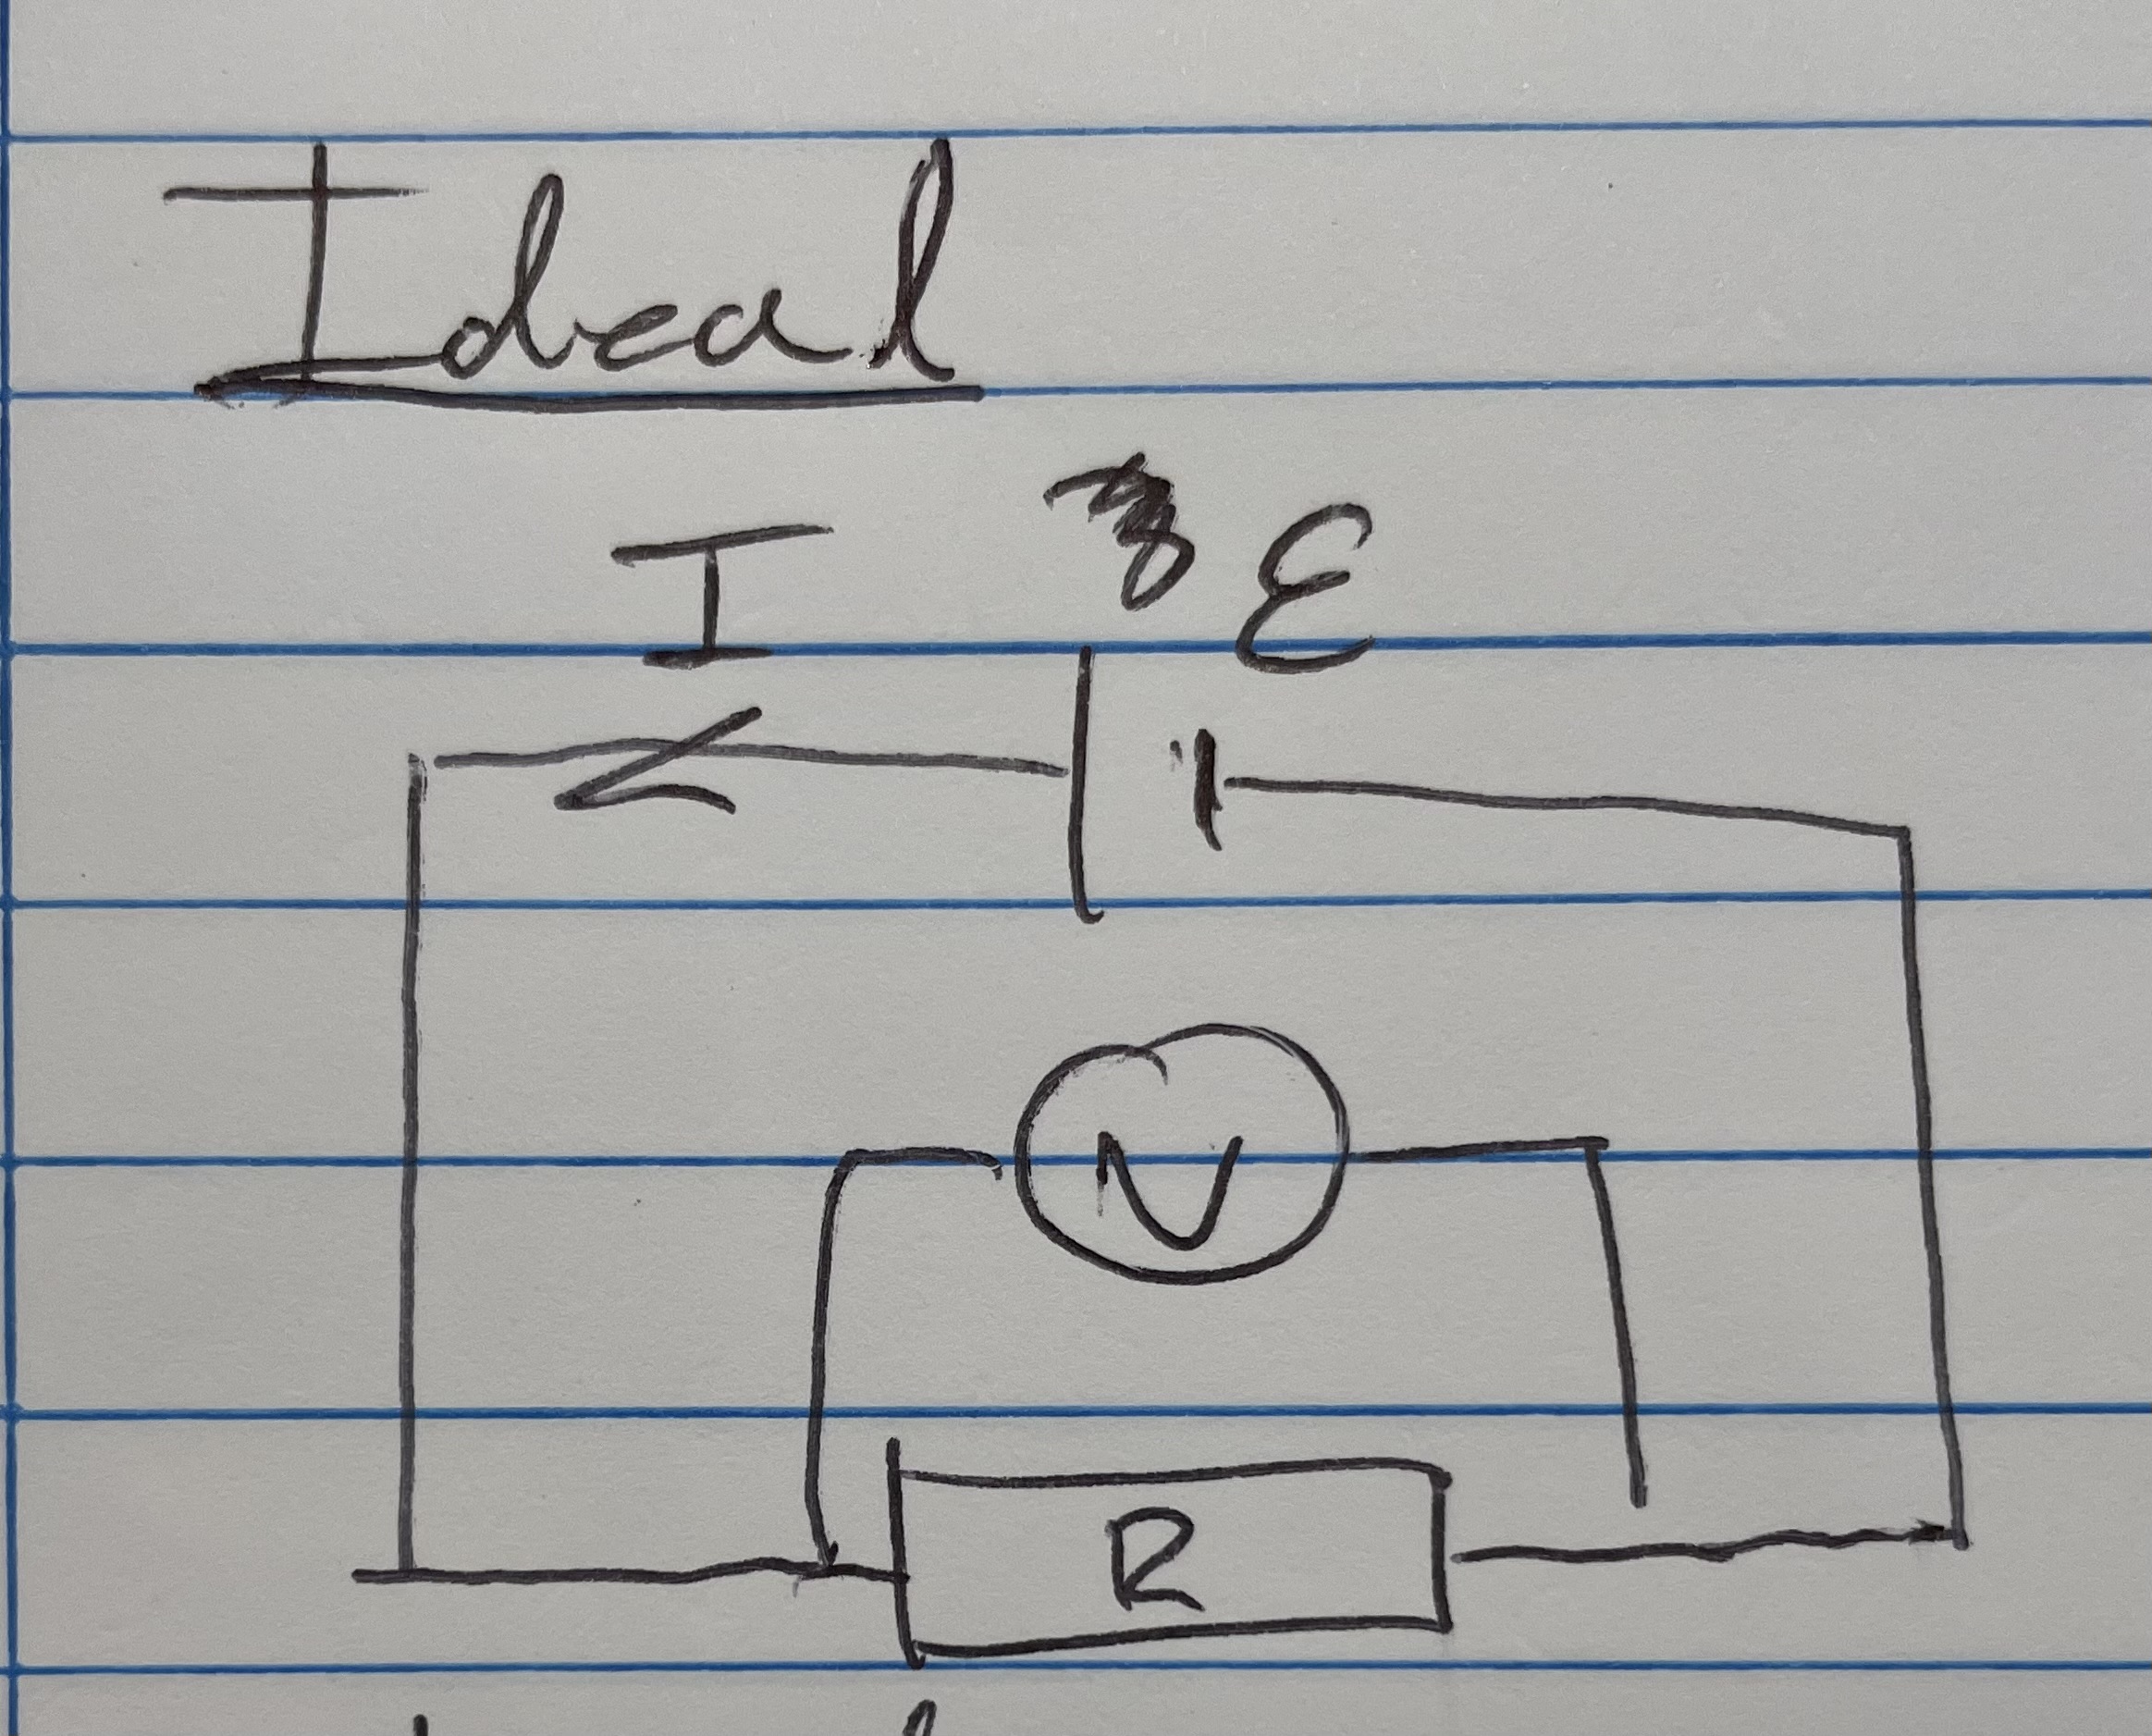 Ideal
I ε
V
R